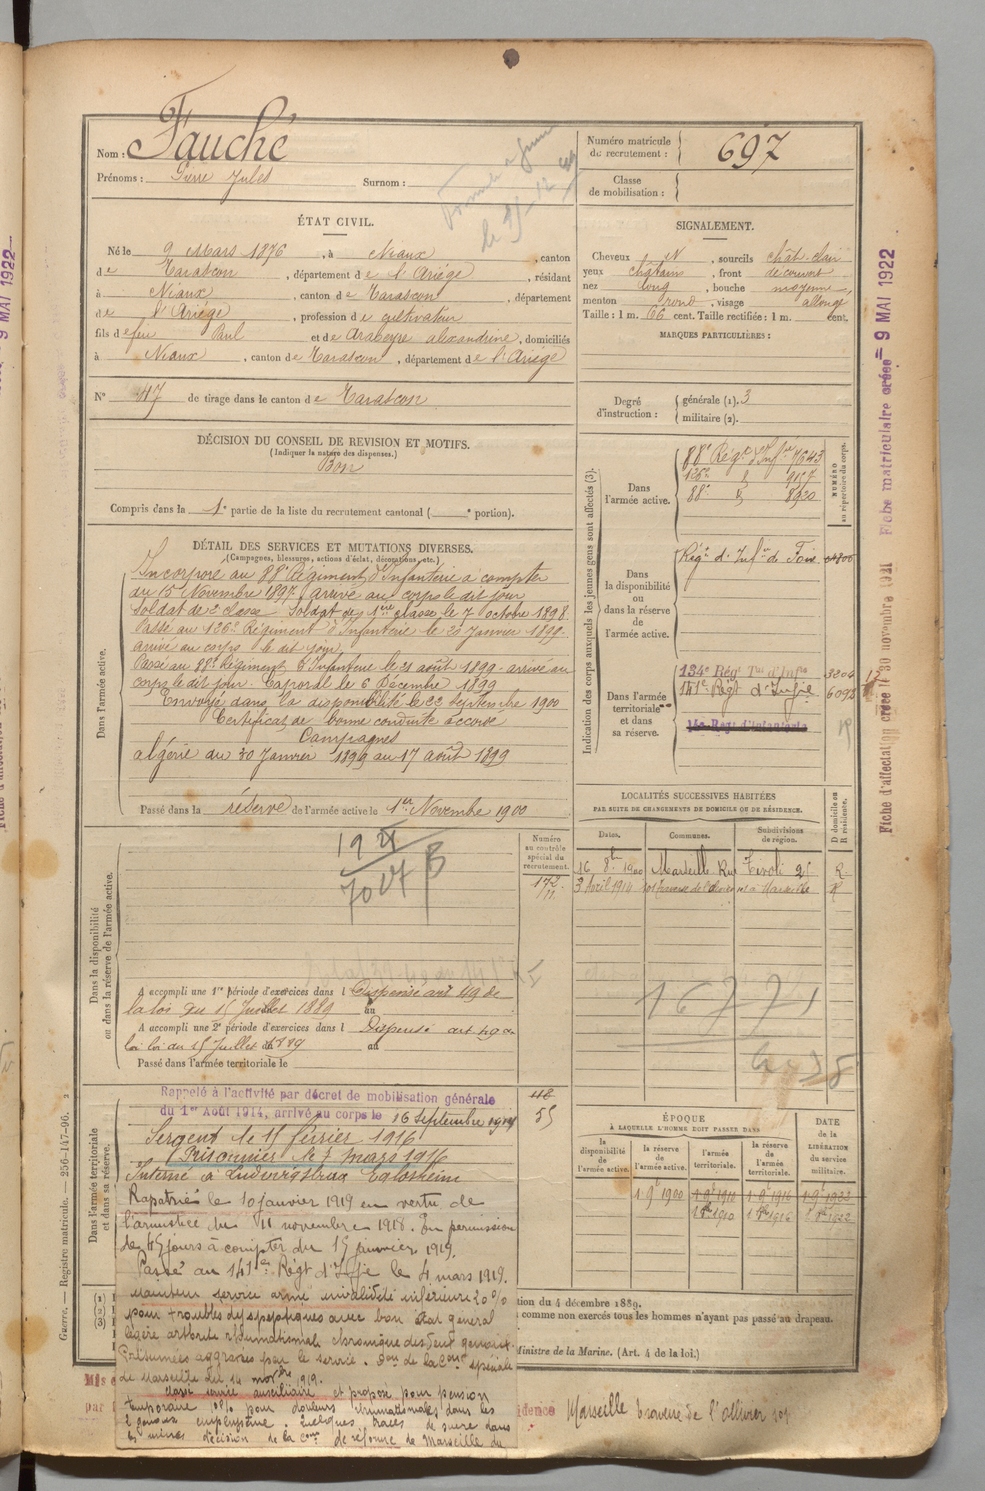 Nom : Fauché
Prénoms : Pierre Jules Surnom :
Numéro matricule
de recrutement : 697
Classe
de mobilisation :
ÉTAT CIVIL.
Né le 9 Mars 1876, à Niaux, canton
de Tarascon, département de l'Ariège, résidant
à Niaux, canton de Tarascon, département
de l'Ariège, profession de cultivateur
fils de feu Paul et de Arabeyre alexandrine, domiciliés
à Niaux, canton de Tarascon, département de l'Ariège
N° 117 de tirage dans le canton de Tarascon
SIGNALEMENT.
Cheveux N, sourcils chât-clair
yeux châtain, front découvert
nez long, bouche moyenne,
menton rond, visage allongé
Taille : 1 m. 66 cent. Taille rectifiée : 1 m. cent.
MARQUES PARTICULIÈRES :
Degré
d'instruction :
générale (1). 3
militaire (2).
DÉCISION DU CONSEIL DE REVISION ET MOTIFS.
(Indiquer la nature des dispenses.)
Bon
Compris dans la 1e partie de la liste du recrutement cantonal ( e portion).
DÉTAIL DES SERVICES ET MUTATIONS DIVERSES.
(Campagnes, blessures, actions d'éclat, décorations, etc.)
Dans l'armée active.
Incorporé au 88e Régiment d'Infanterie à compter
du 15 Novembre 1897, arrivé au corps le dit jour
soldat de 2e classe. Soldat de 1ère classe le 7 octobre 1898.
Passé au 126e Régiment d'Infanterie le 20 Janvier 1899.
arrivé au corps le dit jour
Passé au 88e Régiment d'Infanterie le 21 août 1899. arrivé au
corps le dit jour. Caporal le 6 Décembre 1899
Envoyé dans la disponibilité le 22 septembre 1900
Certificat de bonne conduite accordé
Campagnes
Algérie du 30 Janvier 1899 au 17 août 1899
Passé dans la réserve de l'armée active le 1er Novembre 1900
Indication des corps auxquels les jeunes gens sont affectés (3).
NUMÉRO
au répertoire du corps.
Dans
l'armée active.
88e Régt d'Infrie 7643
126e 9157
88e 8920
Dans
la disponibilité
ou
dans la réserve
de
l'armée active.
Régt d'Infie de Foix
Dans l'armée
territoriale
et dans
sa réserve.
134e Régt Tal d'Infie
141e Régt d'Infie
LOCALITÉS SUCCESSIVES HABITÉES
PAR SUITE DE CHANGEMENTS DE DOMICILE OU DE RÉSIDENCE.
Dates. Communes. Subdivisions
de région.
D domicile ou
R résidence.
16 8bre 1900 Marseille Rue Tivoli 25 R.
3 Avril 1910 R
Dans la disponibilité
ou dans la réserve de l'armée active.
Numéro
au contrôle
spécial du
recrutement.
172
11
A accompli une 1re période d'exercices dans l Dispensé art 49 de
la loi du 15 Juillet 1889 au
A accompli une 2e période d'exercices dans l Dispensé art 49 de
la loi du 15 Juillet 1889 au
Passé dans l'armée territoriale le
1677
Dans l'armée territoriale
et dans sa réserve.
Rappelé à l'activité par décret de mobilisation générale
du 1er Août 1914, arrivé au corps le 16 septembre 1914
Sergent le 15 février 1916
Prisonnier le 7 mars 1916
Interné à Ludwigsbux Eglosheim
Rapatrié le 10 janvier 1919 en vertu de
l'armistice du 11 novembre 1918. En permission
de 45 jours à compter du 15 janvier 1919.
Passé au 141e Régt d'Infie le 4 mars 1919.
Maintenu service armé invalidité inférieure 20%
pour troubles dyspeptiques avec bon état général
légère arthrite rhumatismale chronique des deux genoux.
Présumées aggravées par le service. Don de la Con spéciale
de Marseille du 14 1919.
Classé service auxiliaire et proposé pour pension
temporaire 10% pour douleurs rhumatismales dans les
2 genoux emphysème. Quelques traces de sucre dans
les urines décision de la Con de réforme de Marseille du
ÉPOQUE
À LAQUELLE L'HOMME DOIT PASSER DANS
la
disponibilité
de
l'armée active.
la réserve
de
l'armée active.
l'armée
territoriale.
la réserve
de
l'armée
territoriale.
DATE
de la
LIBÉRATION
du service
militaire.
1 9bre 1900 1 9bre 1910 1 9bre 1916 1 9bre 1922
1 8bre 1910 1 8bre 1916
tion du 4 décembre 1889.
comme non exercés tous les hommes n'ayant pas passé au drapeau.
Ministre de la Marine. (Art. 4 de la loi.)
idence Marseille traverse de l'Ollivier 101
Guerre. — Registre matricule. — 256-147-96. 2
Fiche d'affectation créée le 30 novembre 1921 Fiche matriculaire créée = 9 MAI 1922
9 MAI 1922